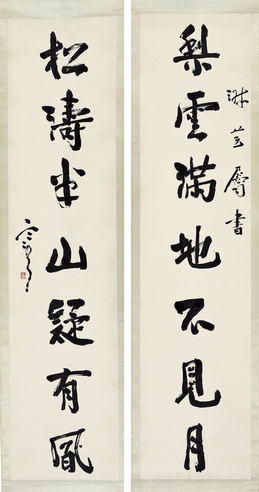 梨雲滿地不見月
屬書
松濤半山疑有風